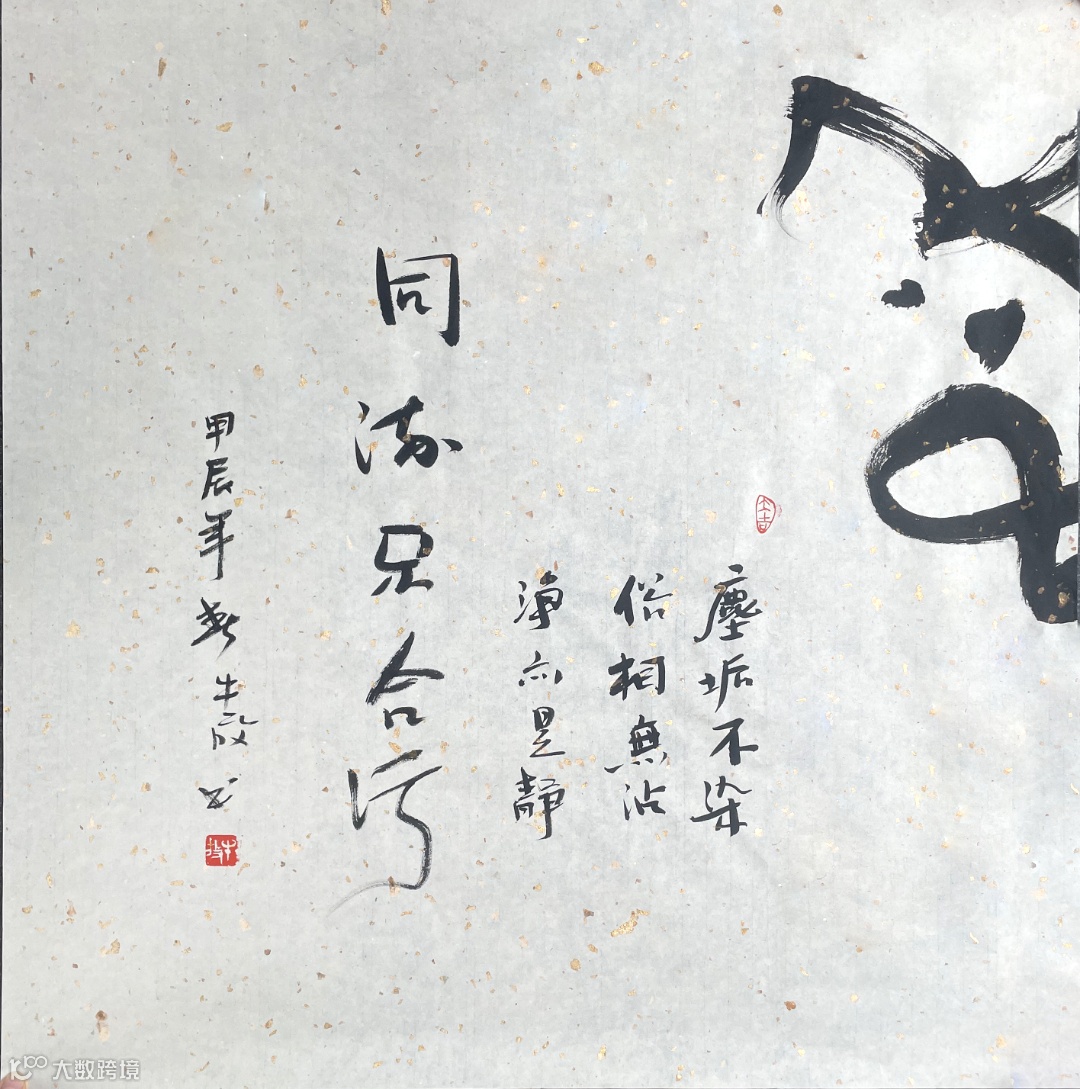 大吉
塵垢不染
俗相無沾
淨亦是靜
同流合污
甲辰年春牛书
大数跨境